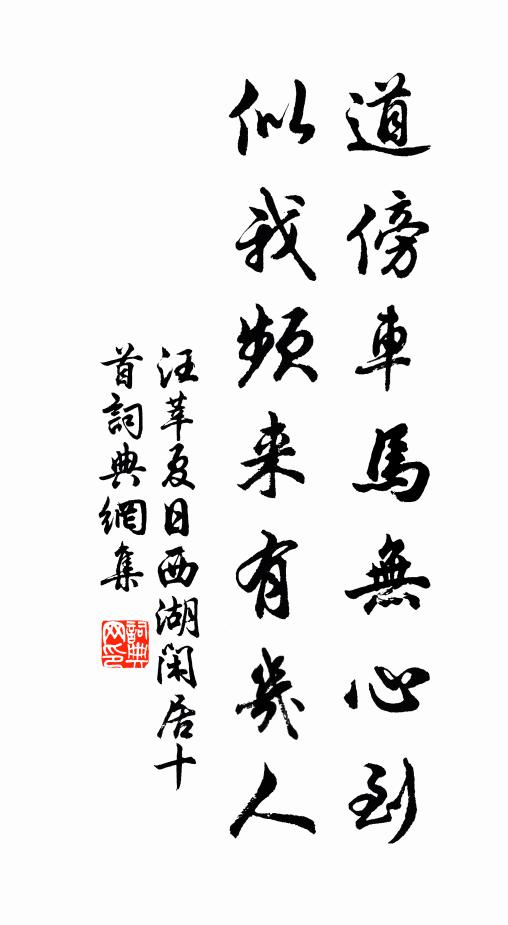 道傍車馬無心到
似我頻来有幾人
汪莘夏日西湖閑居十
首詞典網集
詞典
网印